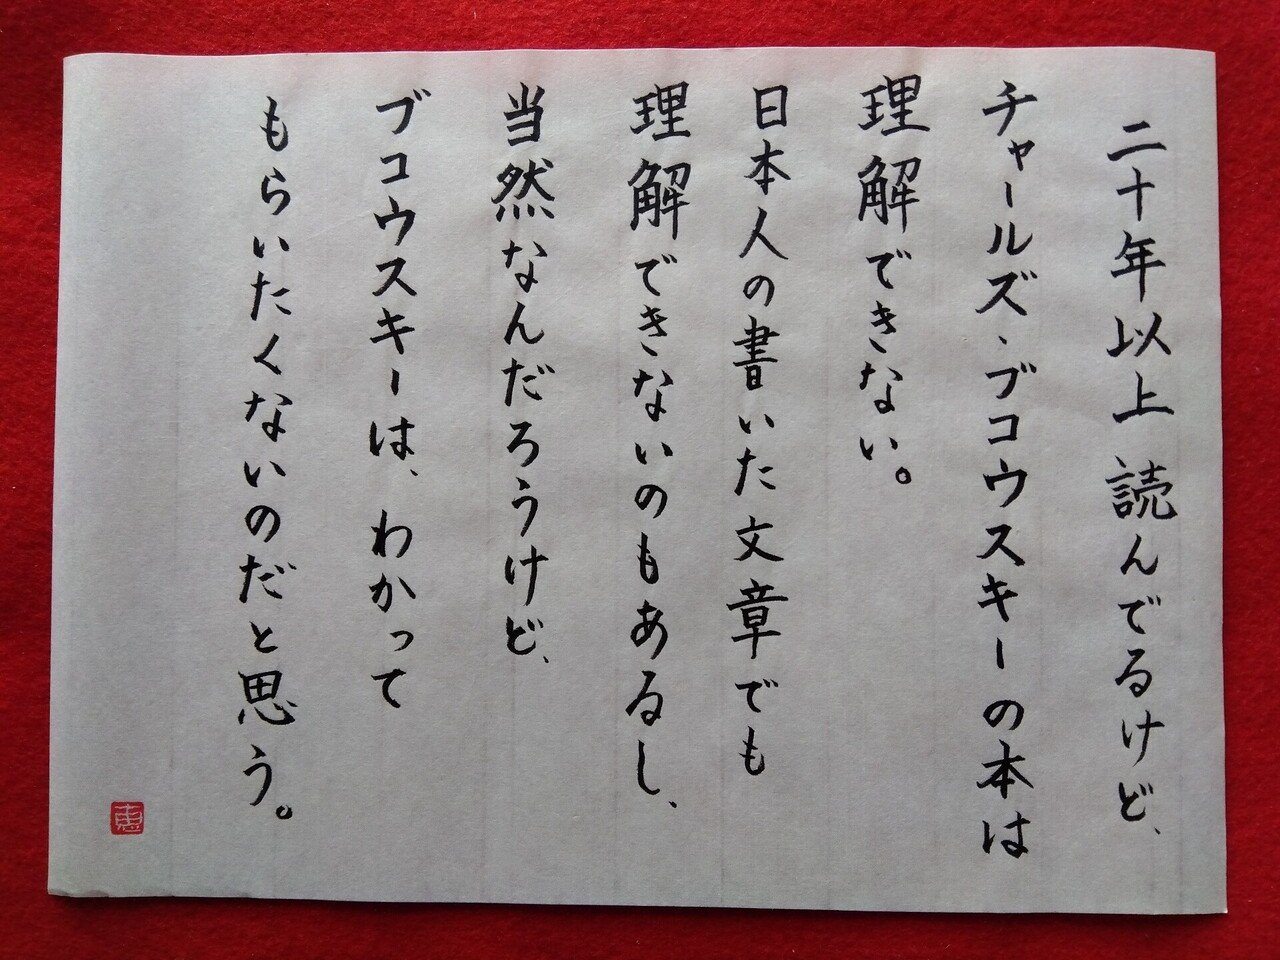 二十年以上読んでるけど、
チャールズ・ブコウスキーの本は
理解できない。
日本人の書いた文章でも
理解できないのもあるし、
当然なんだろうけど、
ブコウスキーは、わかって
もらいたくないのだと思う。
恵